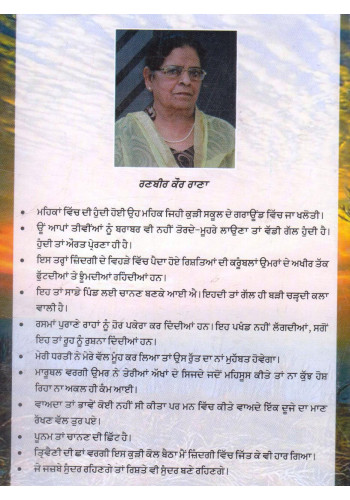 ਰਣਬੀਰ ਕੌਰ ਰਾਣਾ
• ਮਹਿਕਾਂ ਵਿੱਚ ਦੀ ਹੁੰਦੀ ਹੋਈ ਉਹ ਮਹਿਕ ਜਿਹੀ ਕੁੜੀ ਸਕੂਲ ਦੇ ਗਰਾਊਂਡ ਵਿੱਚ ਜਾ ਖਲੋਤੀ।
• ਊਂ ਆਪਾਂ ਤੀਵੀਂਆਂ ਨੂੰ ਬਰਾਬਰ ਵੀ ਨਹੀਂ ਤੋਰਦੇ-ਮੂਹਰੇ ਲਾਉਣਾ ਤਾਂ ਵੱਡੀ ਗੱਲ ਹੁੰਦੀ ਹੈ।
ਹੁੰਦੀ ਤਾਂ ਔਰਤ ਪ੍ਰੇਰਣਾ ਹੀ ਹੈ।
• ਇਸ ਤਰ੍ਹਾਂ ਜ਼ਿੰਦਗੀ ਦੇ ਵਿਹੜੇ ਵਿੱਚ ਪੈਦਾ ਹੋਏ ਰਿਸ਼ਤਿਆਂ ਦੀ ਕਰੂੰਬਲਾਂ ਉਮਰਾਂ ਦੇ ਅਖੀਰ ਤੱਕ
ਫੁੱਟਦੀਆਂ ਤੇ ਝੂੰਮਦੀਆਂ ਰਹਿੰਦੀਆਂ ਹਨ।
• ਇਹ ਤਾਂ ਸਾਡੇ ਪਿੰਡ ਲਈ ਚਾਨਣ ਬਣਕੇ ਆਈ ਐ। ਇਹਦੀ ਤਾਂ ਗੱਲ ਹੀ ਬੜੀ ਚੜ੍ਹਦੀ ਕਲਾ
ਵਾਲੀ ਹੈ।
• ਰਸਮਾਂ ਪੁਰਾਣੇ ਰਾਹਾਂ ਨੂੰ ਹੋਰ ਪਕੇਰਾ ਕਰ ਦਿੰਦੀਆਂ ਹਨ। ਇਹ ਪਖੰਡ ਨਹੀਂ ਲੱਗਦੀਆਂ, ਸਗੋਂ
ਇਹ ਤਾਂ ਰੂਹ ਨੂੰ ਰੁਸ਼ਨਾ ਦਿੰਦੀਆਂ ਹਨ।
• ਮੇਰੀ ਧਰਤੀ ਨੇ ਮੇਰੇ ਵੱਲ ਮੂੰਹ ਕਰ ਲਿਆ ਤਾਂ ਉਸ ਰੁੱਤ ਦਾ ਨਾਂ ਮੁਹੱਬਤ ਹੋਵੇਗਾ।
• ਮਾਰੂਥਲ ਵਰਗੀ ਉਮਰ ਨੇ ਤੇਰੀਆਂ ਅੱਖਾਂ ਦੇ ਸਿਜਦੇ ਜਦੋਂ ਮਹਿਸੂਸ ਕੀਤੇ ਤਾਂ ਨਾ ਕੁੱਝ ਹੋਸ਼
ਰਿਹਾ ਨਾ ਅਕਲ ਹੀ ਕੰਮ ਆਈ।
• ਵਾਅਦਾ ਤਾਂ ਭਾਵੇਂ ਕੋਈ ਨਹੀਂ ਸੀ ਕੀਤਾ ਪਰ ਮਨ ਵਿੱਚ ਕੀਤੇ ਵਾਅਦੇ ਇੱਕ ਦੂਜੇ ਦਾ ਮਾਣ
ਰੱਖਣ ਵੱਲ ਤੁਰ ਪਏ।
• ਪੂਨਮ ਤਾਂ ਚਾਨਣ ਦੀ ਛਿੱਟ ਹੈ।
• ਤ੍ਰਿਵੈਣੀ ਦੀ ਛਾਂ ਵਰਗੀ ਇਸ ਕੁੜੀ ਕੋਲ ਬੈਠਾ ਮੈਂ ਜ਼ਿੰਦਗੀ ਵਿੱਚ ਜਿੱਤ ਕੇ ਵੀ ਹਾਰ ਗਿਆ।
• ਜੇ ਜਜ਼ਬੇ ਸੁੰਦਰ ਰਹਿਣਗੇ ਤਾਂ ਰਿਸ਼ਤੇ ਵੀ ਸੁੰਦਰ ਬਣੇ ਰਹਿਣਗੇ।